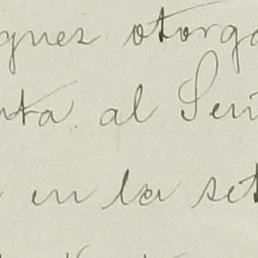 gnez otorga
nta al Señ
en la set